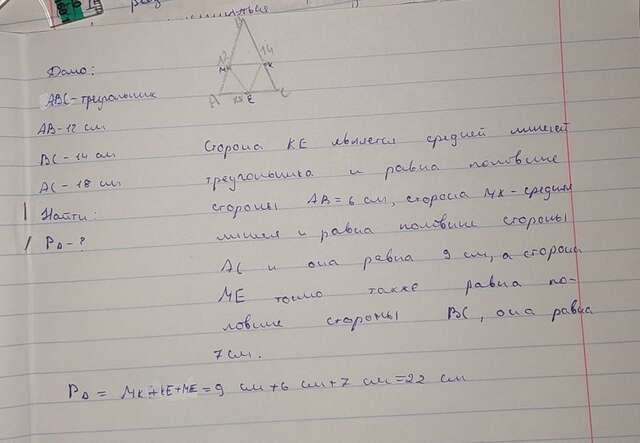 B
12
14
M
K
A
18
E
C
Дано:
ABC - треугольник
AB - 12 см
BC - 14 см
AC - 18 см
Найти:
P∆ - ?
Сторона KE является средней линией
треугольника и равна половине
стороны AB = 6 см, сторона MK - средняя
линия и равна половине стороны
AC и она равна 9 см, а сторона
ME точно также равна по-
ловине стороны BC, она равна
7 см.
P∆ = MK+KE+ME = 9 см + 6 см + 7 см = 22 см